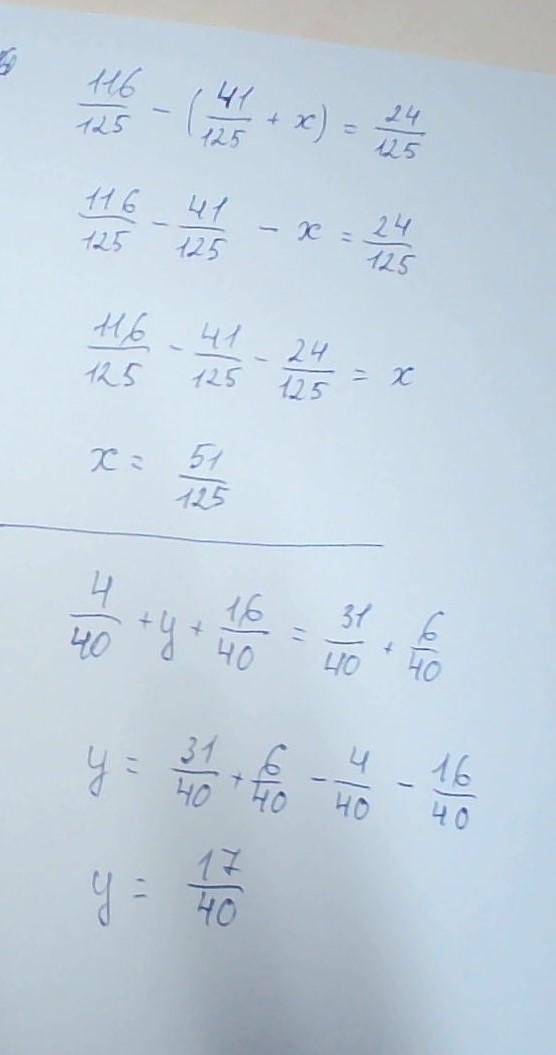 116/125 - (41/125 + x) = 24/125
116/125 - 41/125 - x = 24/125
116/125 - 41/125 - 24/125 = x
x = 51/125
4/40 + y + 16/40 = 31/40 + 6/40
y = 31/40 + 6/40 - 4/40 - 16/40
y = 17/40